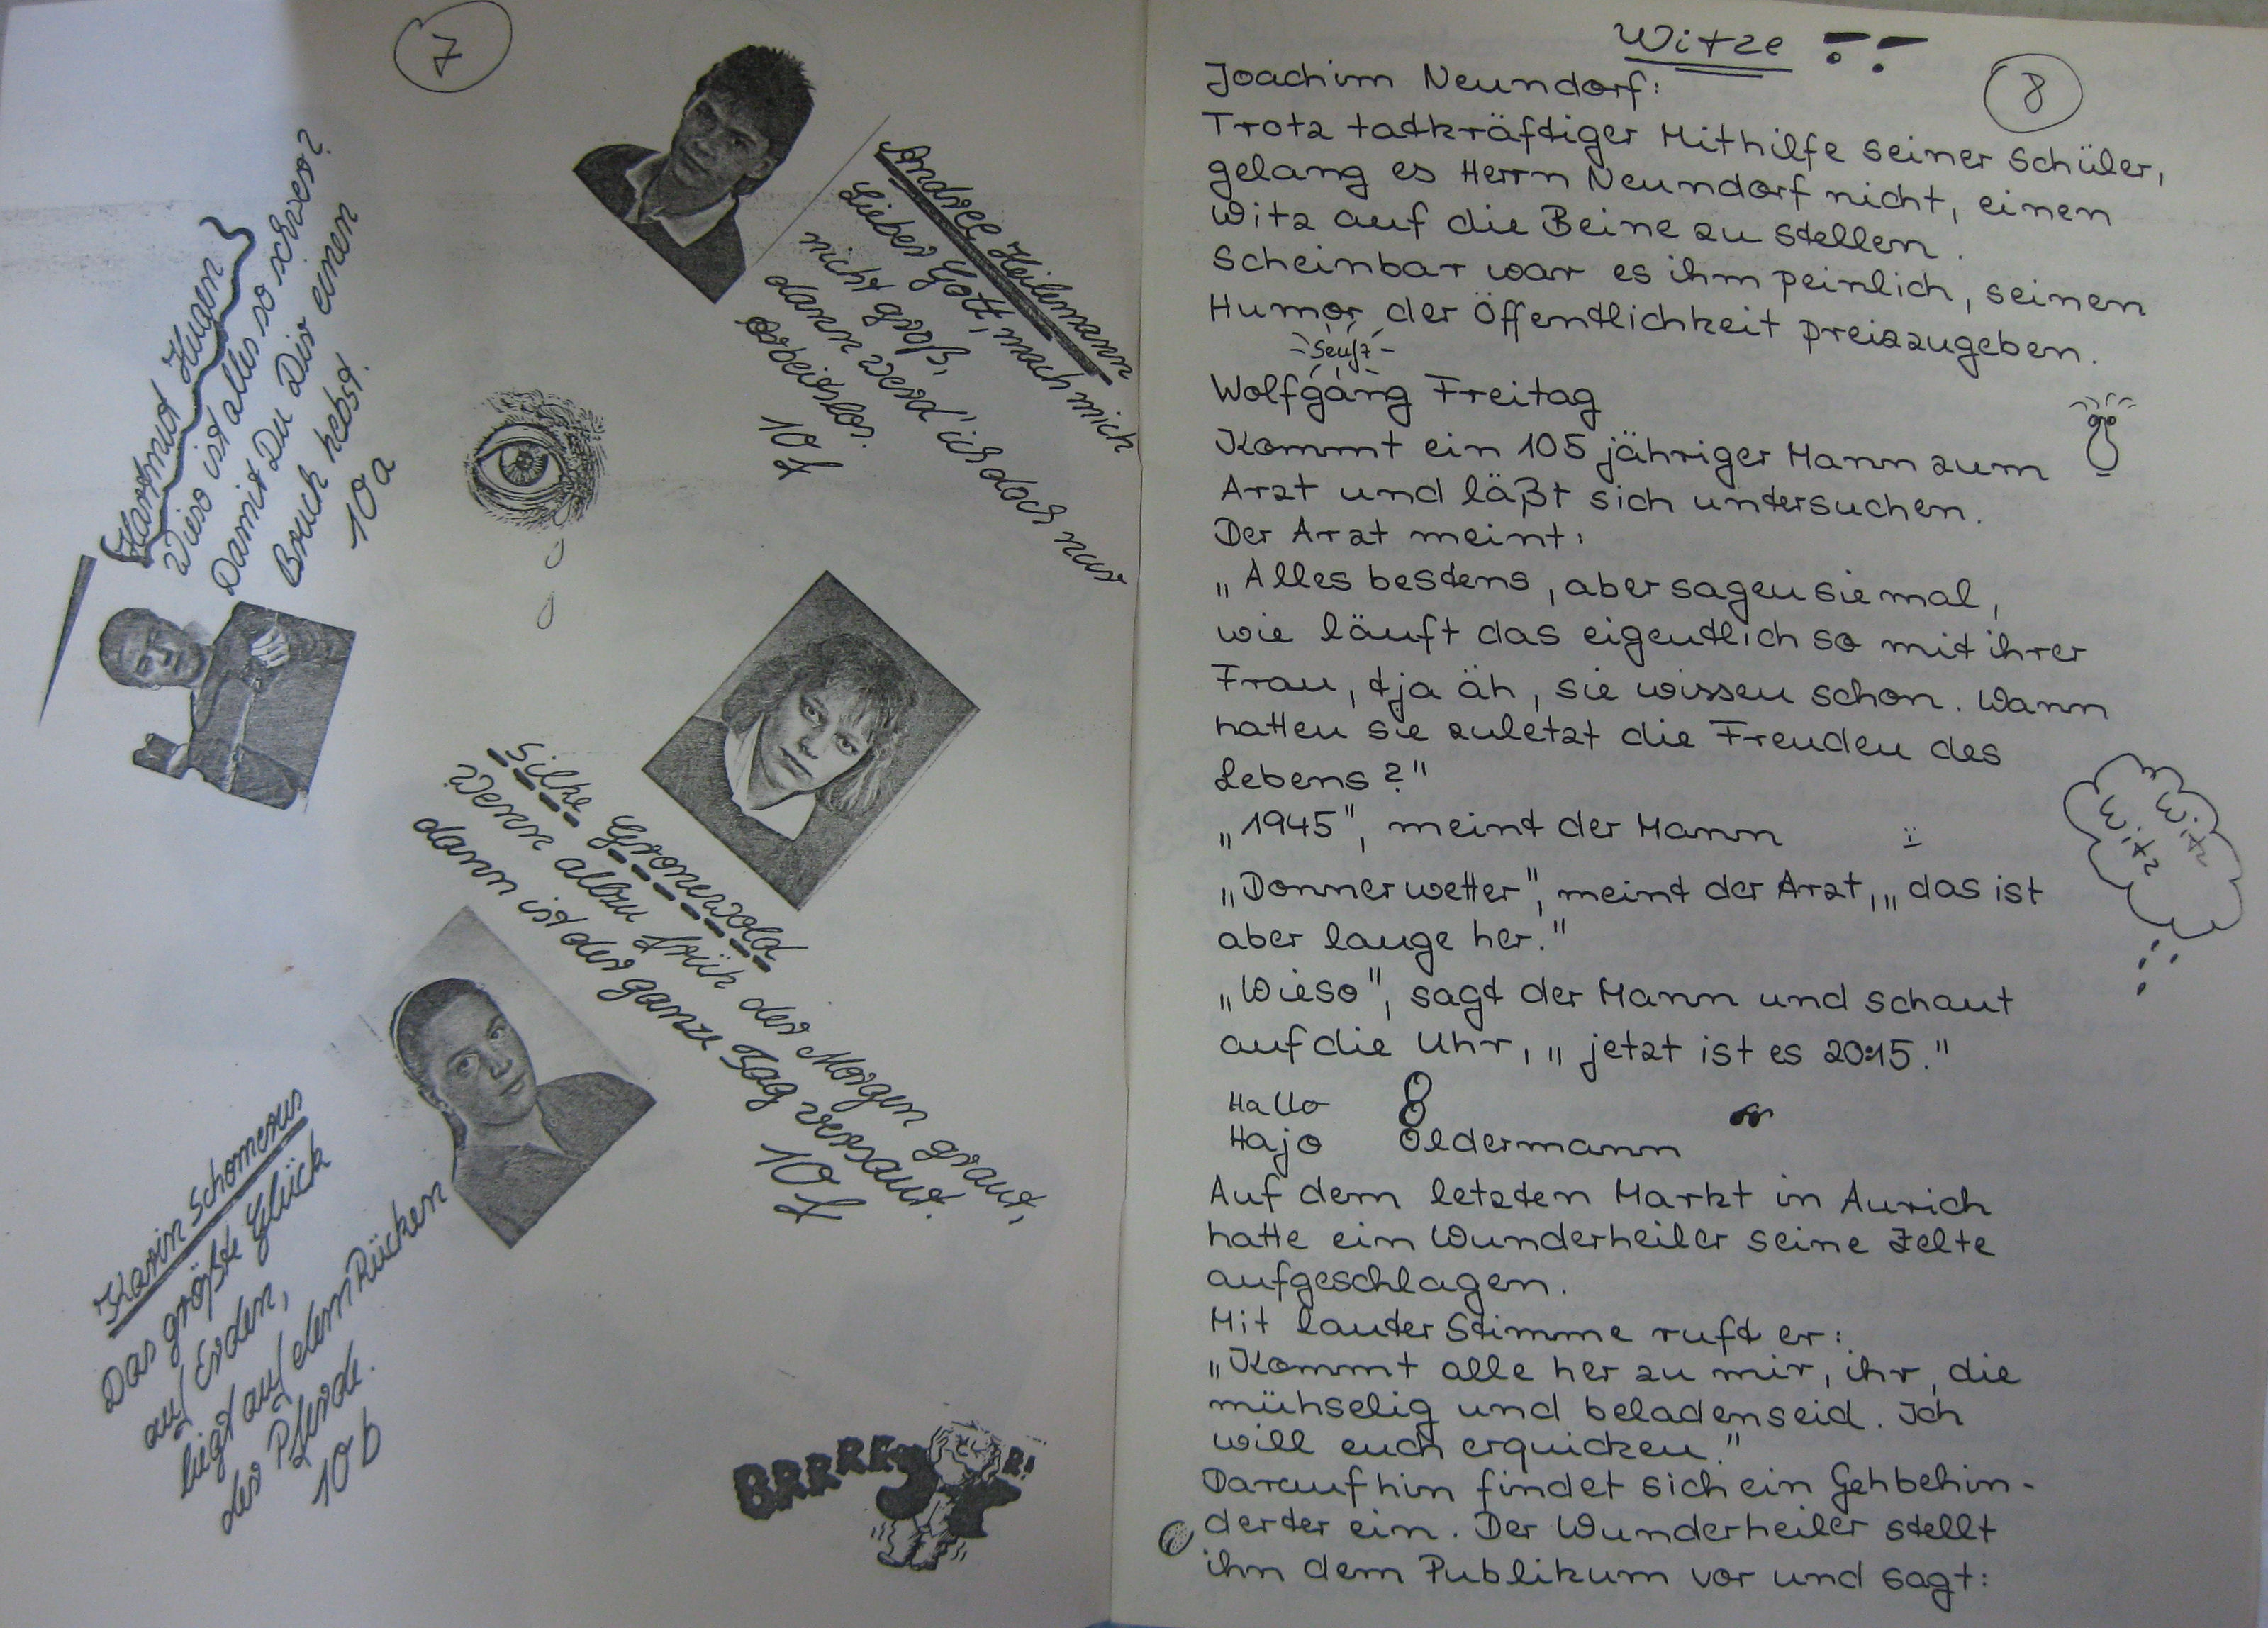 7
Andree Heilemann
Lieber Gott, mach mich
nicht groß,
dann werd' ich doch nur
arbeitslos.
10 f
Hartmut Huaen
Wieso ist alles so schwer?
Damit Du Dir einen
Bruch hebst.
10 a
Silke Gronewold
Wenn allzu früh der Morgen graut,
dann ist der ganze Tag versaut.
10 f
Karin Schomerus
Das größte Glück
auf Erden,
liegt auf dem Rücken
der Pferde.
10 b
BRRRR
R!
Witze !!
8
Joachim Neundorf:
Trotz tatkräftiger Mithilfe seiner Schüler,
gelang es Herrn Neundorf nicht, einen
Witz auf die Beine zu stellen.
Scheinbar war es ihm peinlich, seinen
Humor der Öffentlichkeit preiszugeben.
- Seufz -
Wolfgang Freitag
Kommt ein 105 jähriger Mann zum
Arzt und läßt sich untersuchen.
Der Arzt meint:
„Alles bestens, aber sagen sie mal,
wie läuft das eigentlich so mit ihrer
Frau, tja äh, sie wissen schon. Wann
hatten sie zuletzt die Freuden des
Lebens?"
„1945", meint der Mann
„Donnerwetter", meint der Arzt, „das ist
aber lange her."
„Wieso", sagt der Mann und schaut
auf die Uhr, „jetzt ist es 20:15."
Witz
Witz
Hallo
Hajo Oldermann
Auf dem letzten Markt in Aurich
hatte ein Wunderheiler seine Zelte
aufgeschlagen.
Mit lauter Stimme ruft er:
„Kommt alle her zu mir, ihr, die
mühselig und beladen seid. Ich
will euch erquicken."
Daraufhin findet sich ein Gehbehin-
derter ein. Der Wunderheiler stellt
ihn dem Publikum vor und sagt: